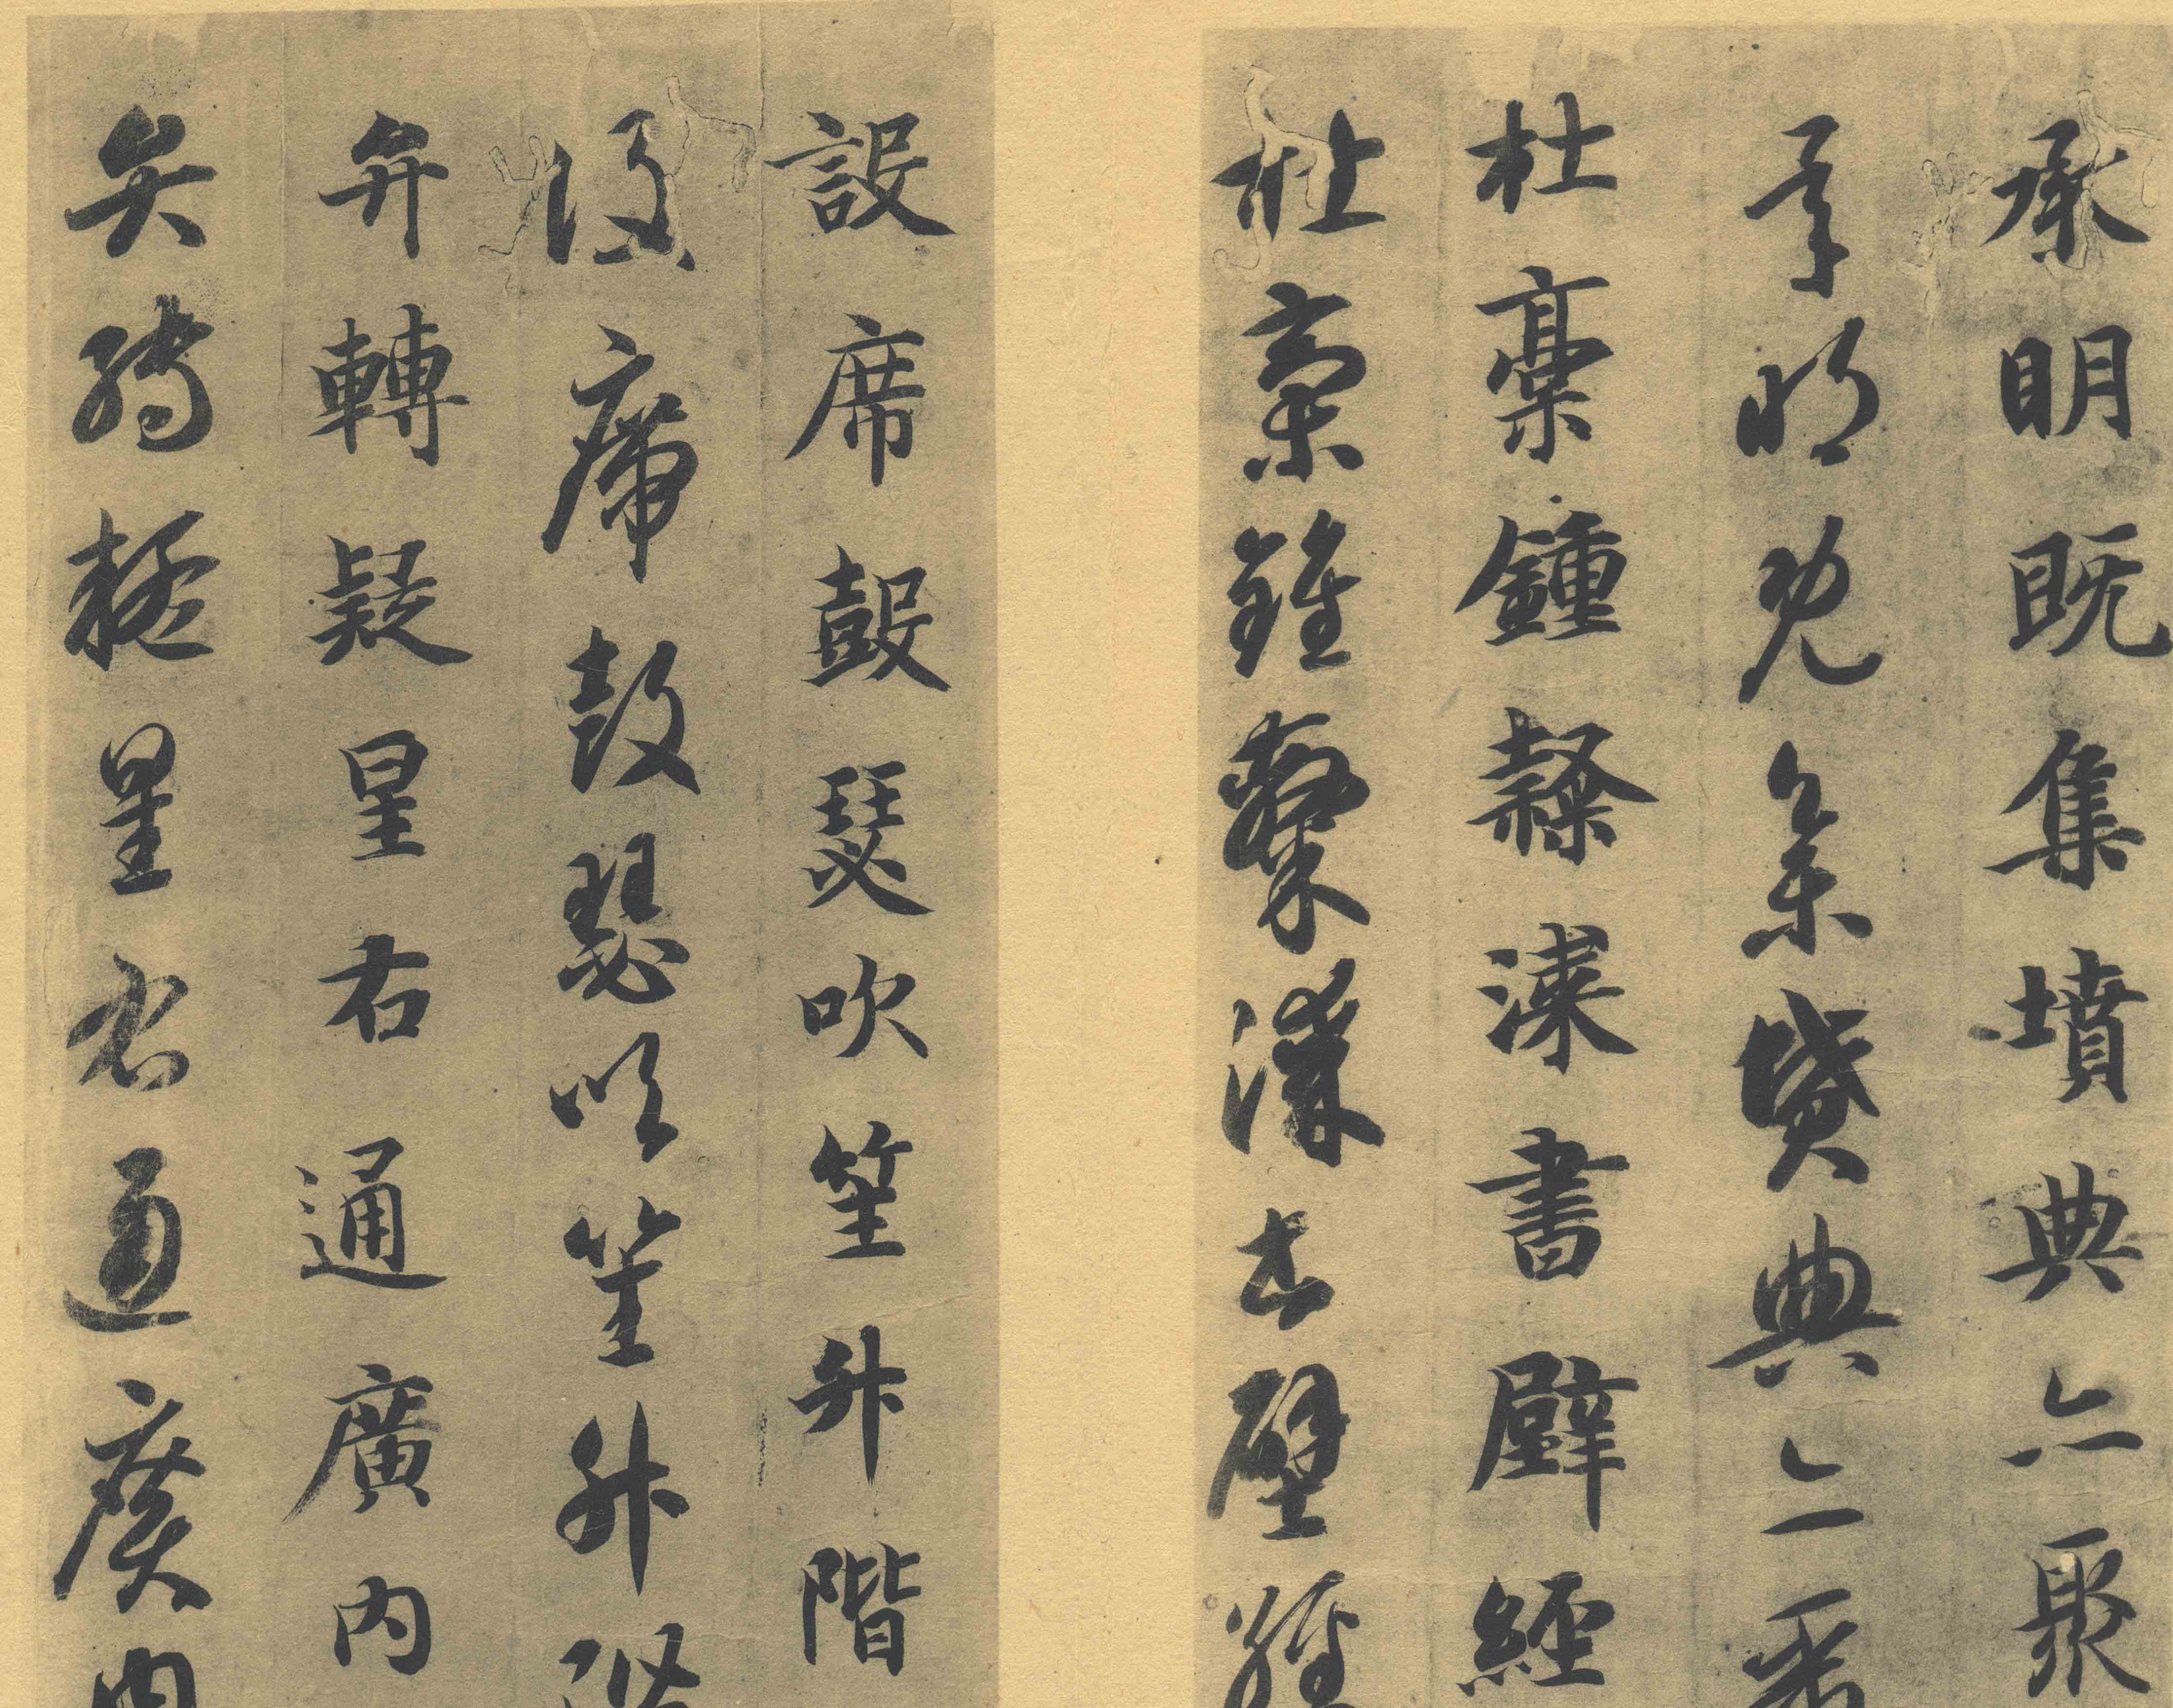 承明既集墳典亦聚
承明既集墳典亦聚
杜稾鍾隸漆書壁經
杜稾鍾隸漆書壁經
設席鼓瑟吹笙升階
設席鼓瑟吹笙升階
弁轉疑星右通廣內
弁轉疑星右通廣內